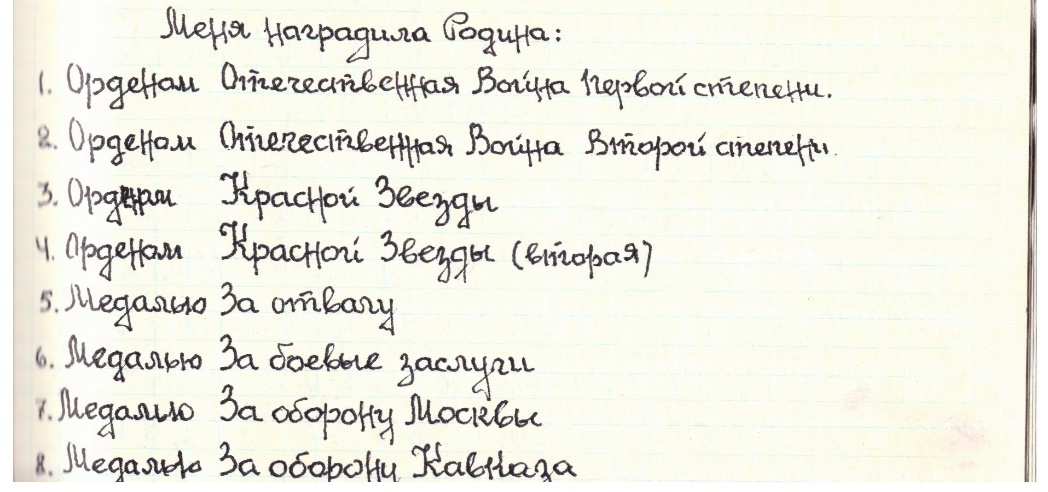 Меня наградила Родина:
1. Орденом Отечественная Война Первой степени.
2. Орденом Отечественная Война Второй степени.
3. Орденом Красной Звезды
4. Орденом Красной Звезды (вторая)
5. Медалью За отвагу
6. Медалью За боевые заслуги
7. Медалью За оборону Москвы
8. Медалью За оборону Кавказа